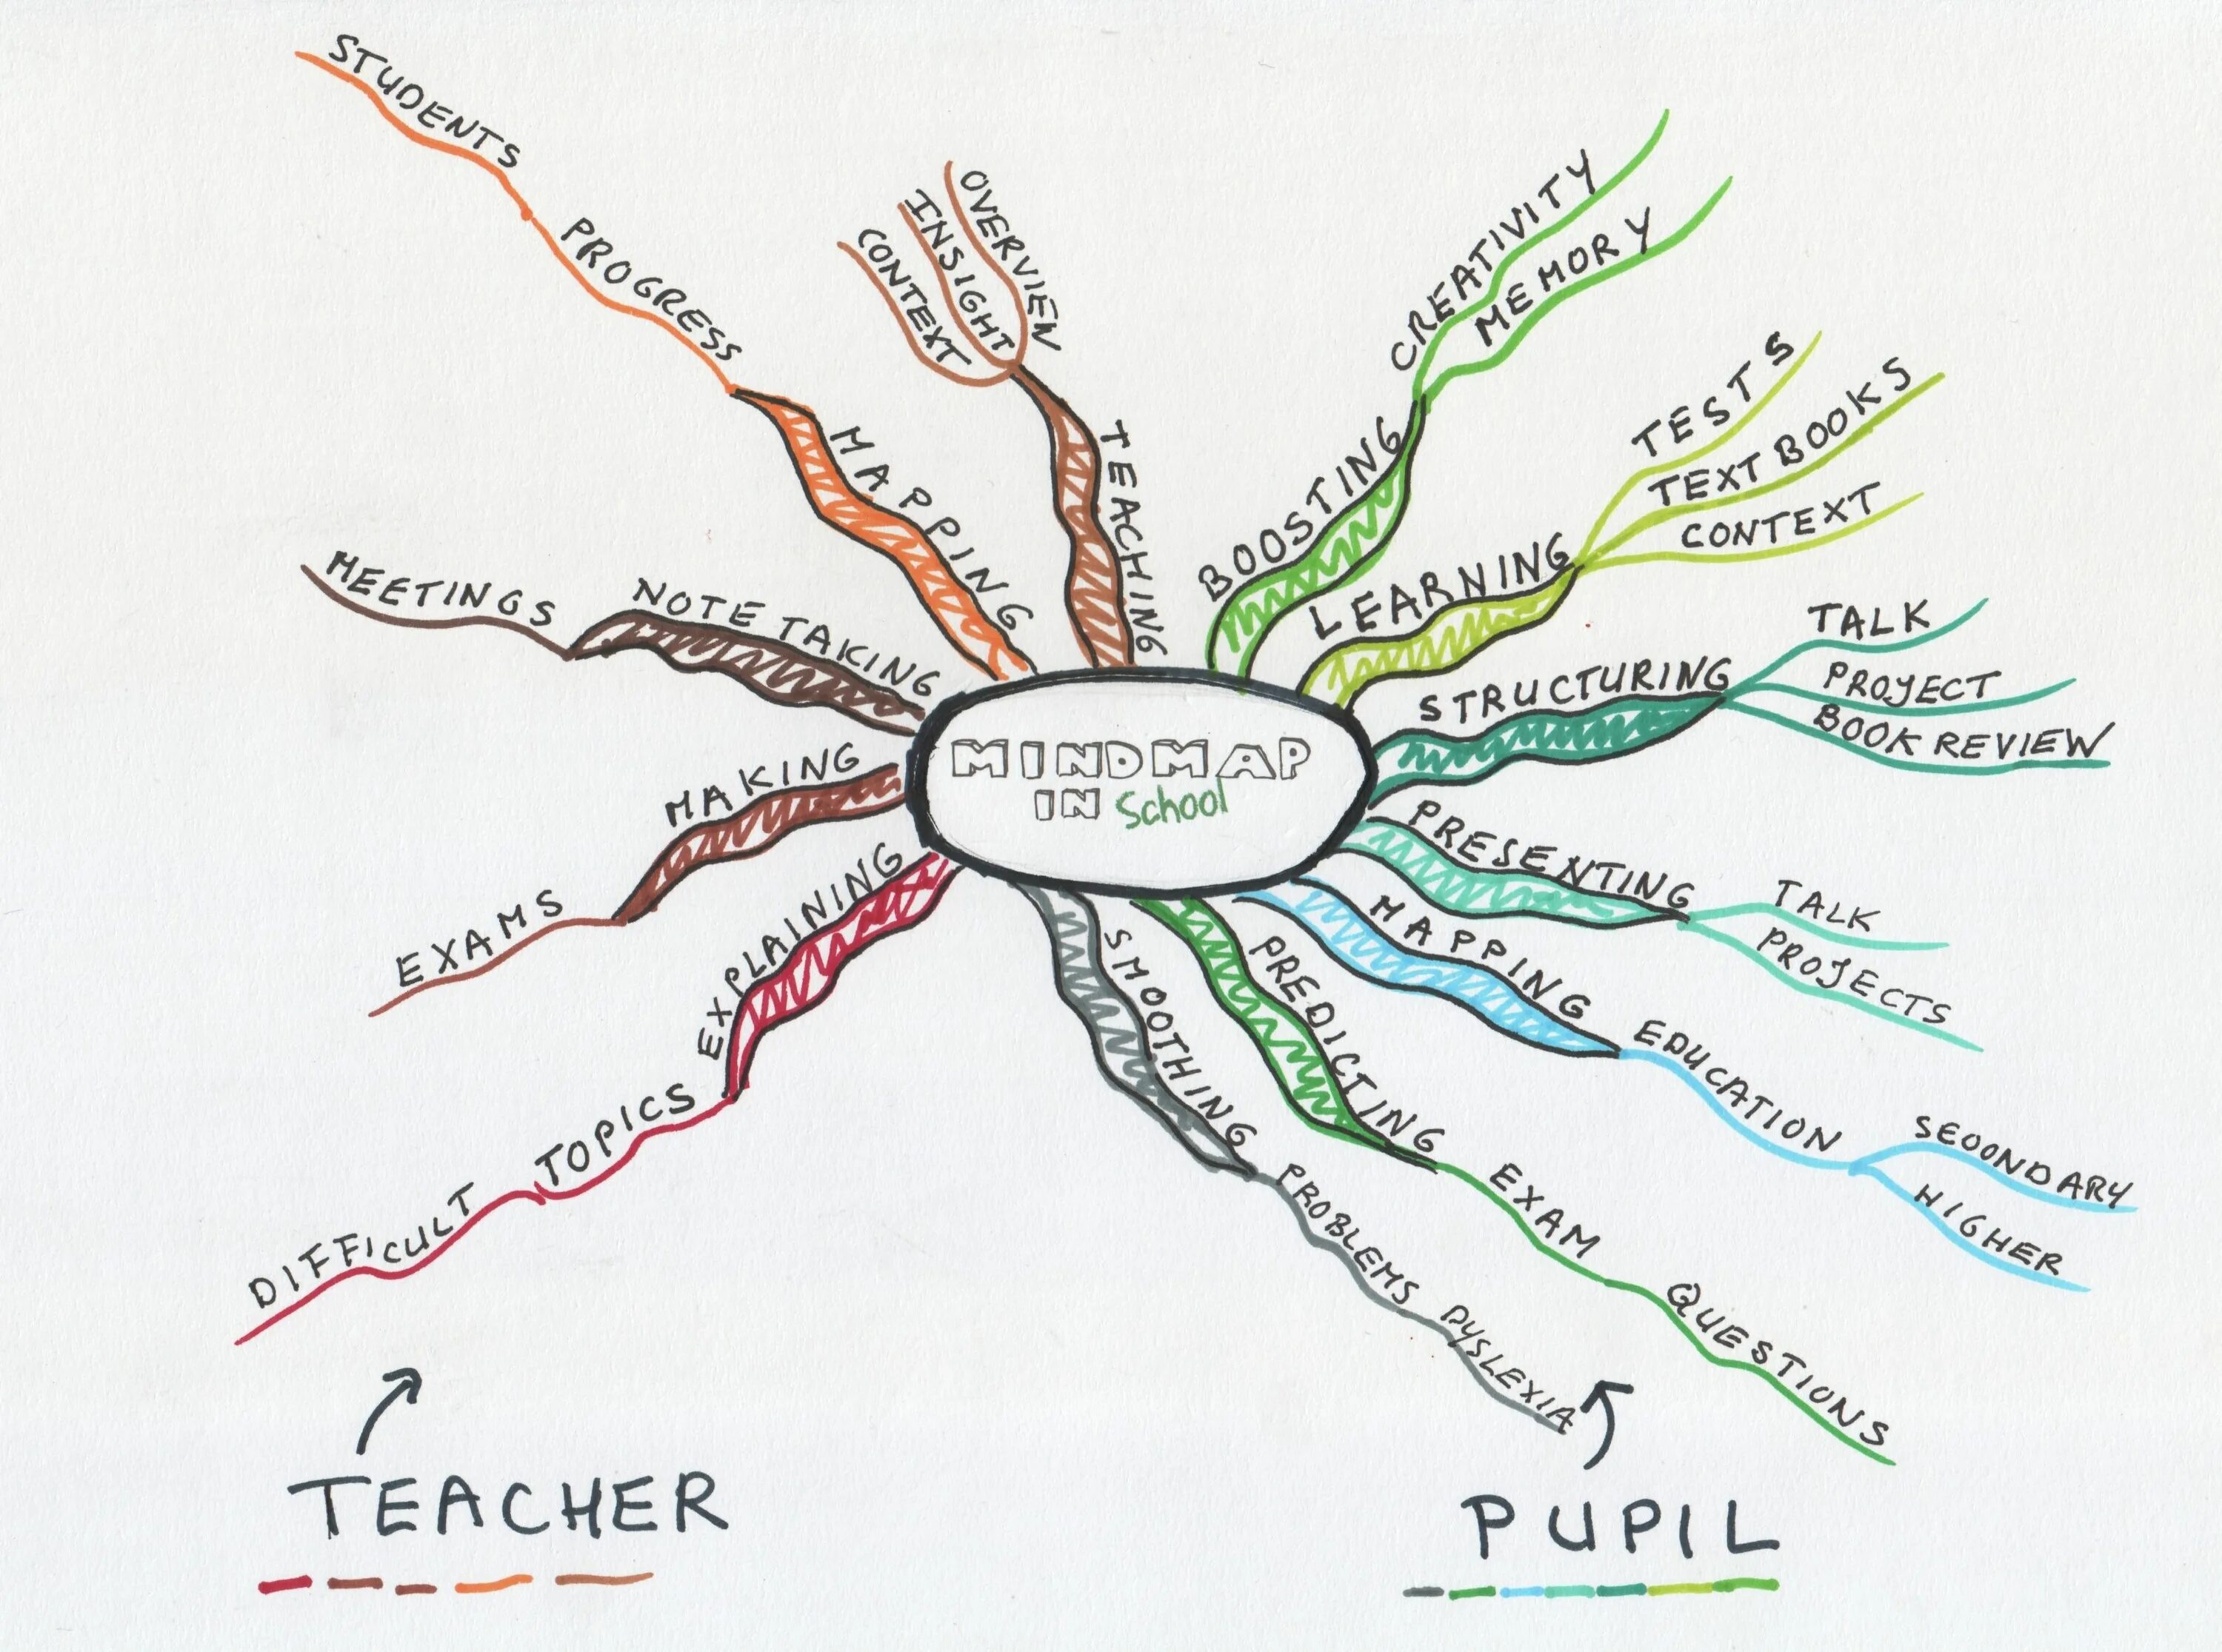 MINDMAP
IN School
TEACHING
OVERVIEW
INSIGHT
CONTEXT
MAPPING
PROGRESS
STUDENTS
NOTE TAKING
MEETINGS
MAKING
EXAMS
EXPLAINING
TOPICS
DIFFICULT
BOOSTING
CREATIVITY
MEMORY
LEARNING
TESTS
TEXT BOOKS
CONTEXT
STRUCTURING
TALK
PROJECT
BOOK REVIEW
PRESENTING
TALK
PROJECTS
MAPPING
EDUCATION
SEOONDARY
HIGHER
PREDICTING
EXAM
QUESTIONS
SMOOTHING
PROBLEMS
DYSLEXIA
TEACHER
PUPIL